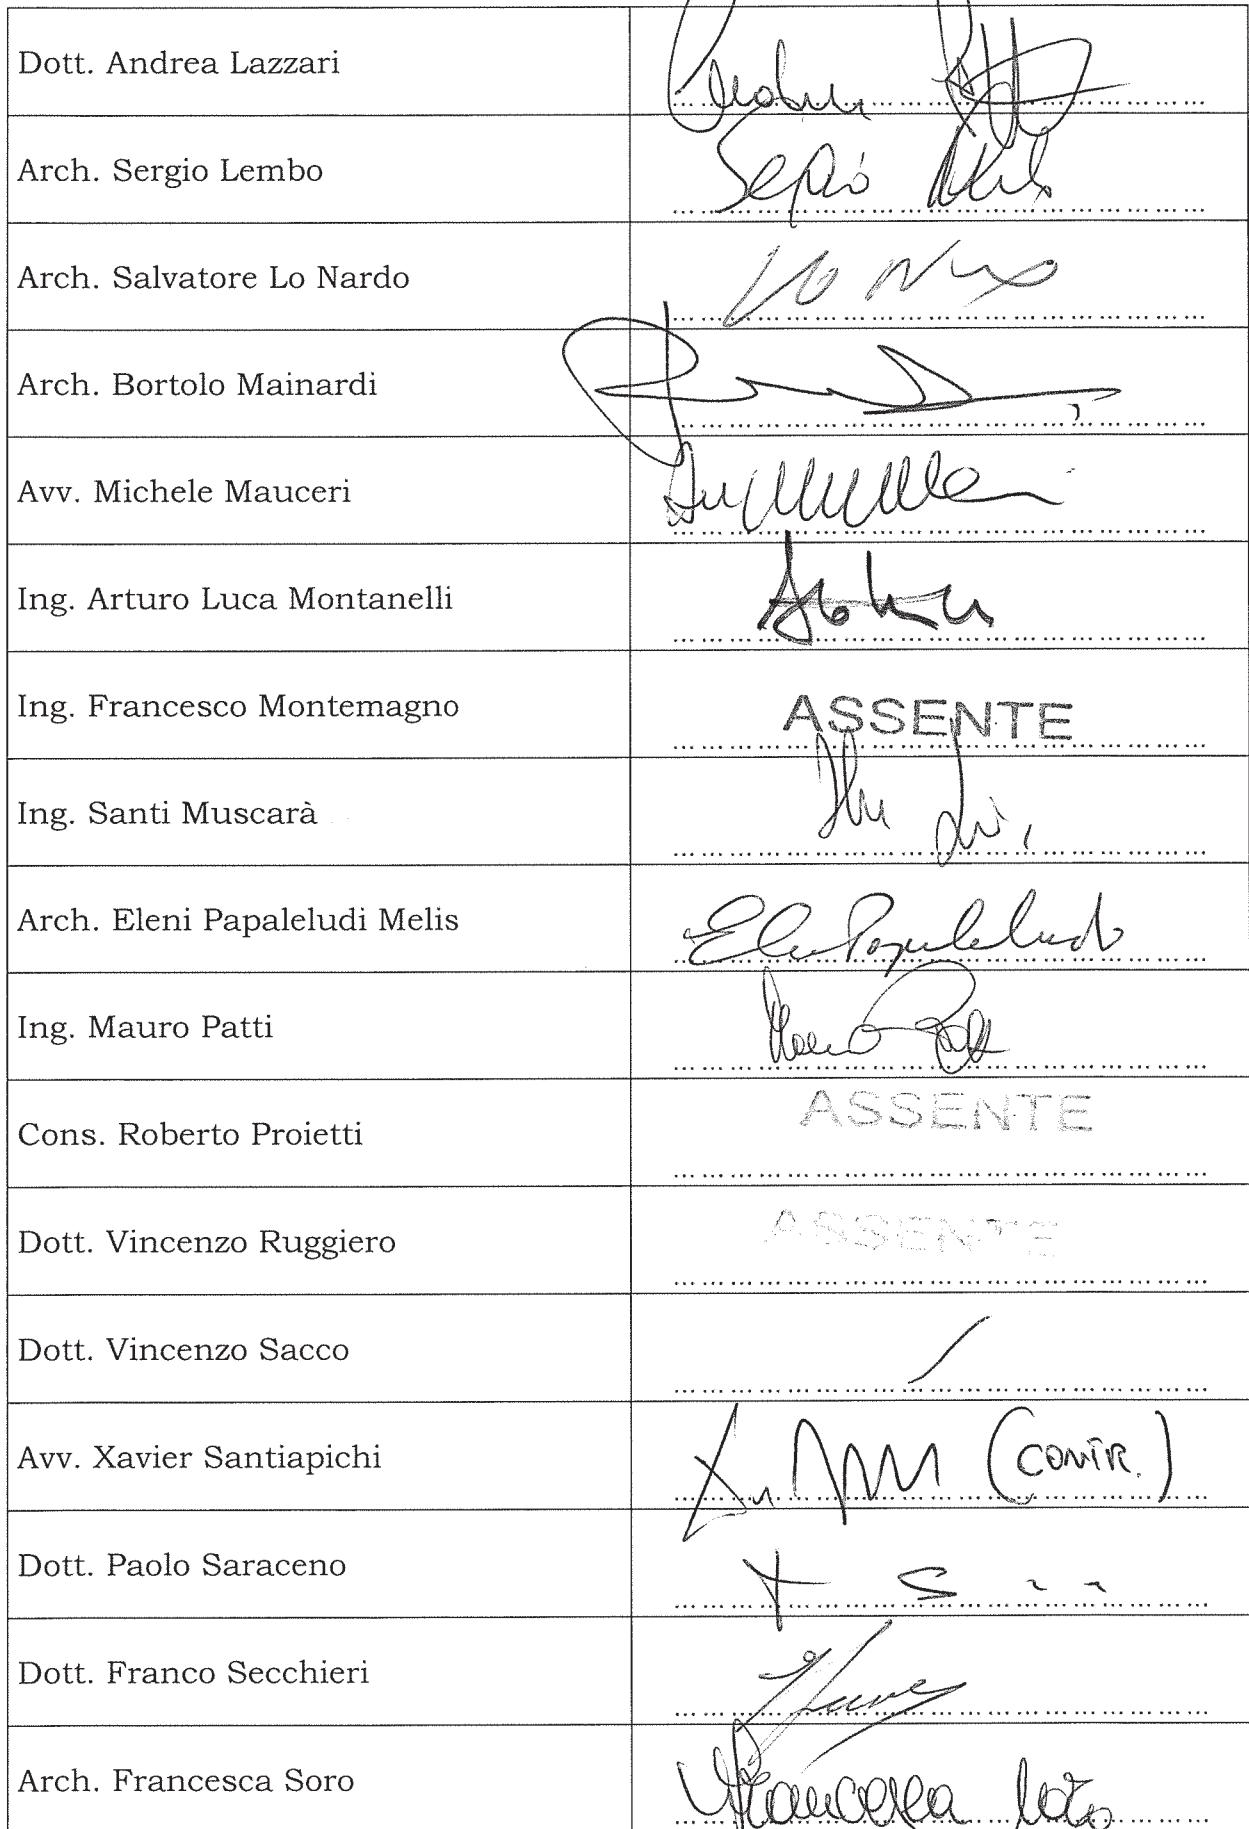 Dott. Andrea Lazzari
Arch. Sergio Lembo
Sergio
Arch. Salvatore Lo Nardo
Arch. Bortolo Mainardi
Avv. Michele Mauceri
Ing. Arturo Luca Montanelli
Ing. Francesco Montemagno
ASSENTE
Ing. Santi Muscarà
Arch. Eleni Papaleludi Melis
Ele Papaleludi
Ing. Mauro Patti
Cons. Roberto Proietti
ASSENTE
Dott. Vincenzo Ruggiero
ASSENTE
Dott. Vincenzo Sacco
Avv. Xavier Santiapichi
(CONTR.)
Dott. Paolo Saraceno
Dott. Franco Secchieri
Arch. Francesca Soro
Francesca Soro